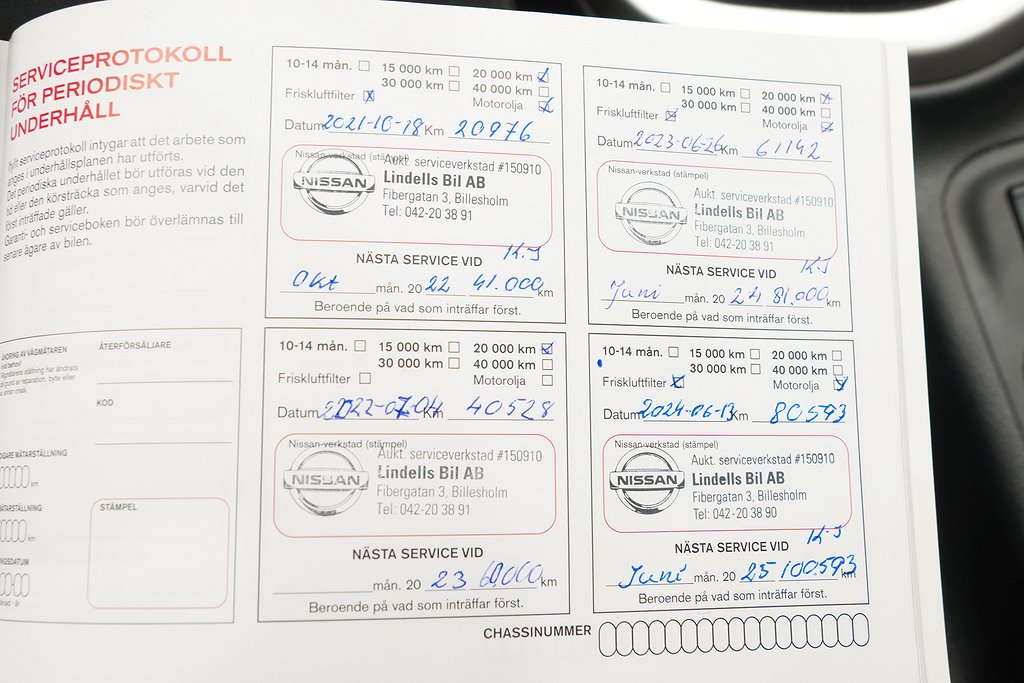 SERVICEPROTOKOLL
FÖR PERIODISKT
UNDERHÅLL
ifyllt serviceprotokoll intygar att det arbete som
anges i underhållsplanen har utförts.
Det periodiska underhållet bör utföras vid den
tid eller den körsträcka som anges, varvid det
först inträffade gäller.
Garanti- och serviceboken bör överlämnas till
senare ägare av bilen.
10-14 mån. 15 000 km 20 000 km
30 000 km 40 000 km
Friskluftfilter Motorolja
Datum 2021-10-18 Km 20976
Nissan-verkstad (stämpel)
NISSAN
Aukt. serviceverkstad #150910
Lindells Bil AB
Fibergatan 3, Billesholm
Tel: 042-20 38 91
K.J
NÄSTA SERVICE VID
Okt mån. 20 22 41.000 km
Beroende på vad som inträffar först.
10-14 mån. 15 000 km 20 000 km
30 000 km 40 000 km
Friskluftfilter Motorolja
Datum 2023-06-26 Km 61142
Nissan-verkstad (stämpel)
NISSAN
Aukt. serviceverkstad #150910
Lindells Bil AB
Fibergatan 3, Billesholm
Tel: 042-20 38 91
K.J
NÄSTA SERVICE VID
Juni mån. 20 24 81.000 km
Beroende på vad som inträffar först.
ÄNDRING AV VÄGMÄTAREN
(vid behov)
Vägmätarens ställning har ändrats
på grund av reparation, byte eller
ÅTERFÖRSÄLJARE
KOD
MÄTARSTÄLLNING
km
MÄTARSTÄLLNING
km
STÄMPEL
år
10-14 mån. 15 000 km 20 000 km
30 000 km 40 000 km
Friskluftfilter Motorolja
Datum 2022-07-04 Km 40528
Nissan-verkstad (stämpel)
NISSAN
Aukt. serviceverkstad #150910
Lindells Bil AB
Fibergatan 3, Billesholm
Tel: 042-20 38 91
NÄSTA SERVICE VID
mån. 20 23 60.000 km
Beroende på vad som inträffar först.
10-14 mån. 15 000 km 20 000 km
30 000 km 40 000 km
Friskluftfilter Motorolja
Datum 2024-06-13 Km 80593
Nissan-verkstad (stämpel)
NISSAN
Aukt. serviceverkstad #150910
Lindells Bil AB
Fibergatan 3, Billesholm
Tel: 042-20 38 90
K.J
NÄSTA SERVICE VID
Juni mån. 20 25 100.593 km
Beroende på vad som inträffar först.
CHASSINUMMER